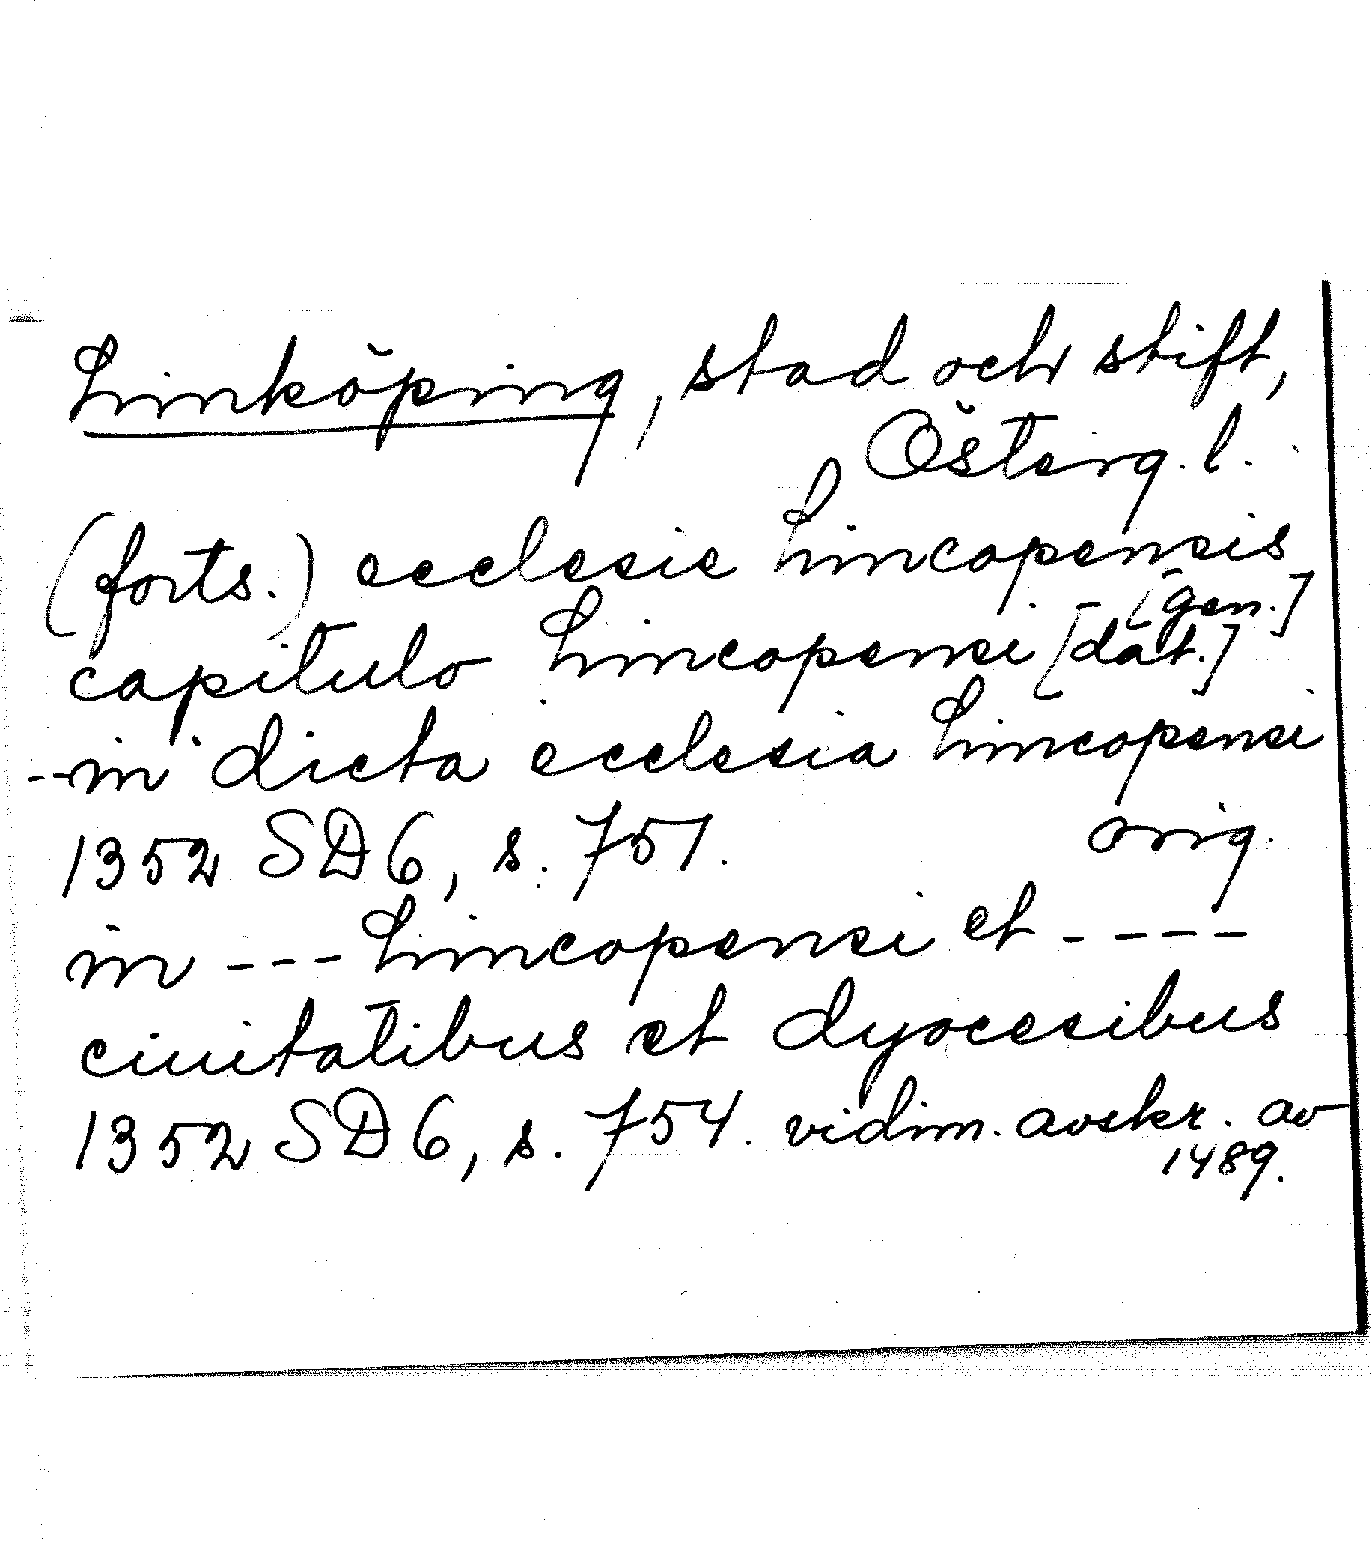 Linköping, stad och stift,
Österg. l.
(forts.) ecclesie Lincopensis
[gen.]
capitulo Lincopensi [dat.]
-- in dicta ecclesia Lincopensi
1352 SD 6, s. 751. orig.
in --- Lincopensi et ----
ciuitatibus et dyocesibus
1352 SD 6, s. 754. vidim. avskr. av
1489.